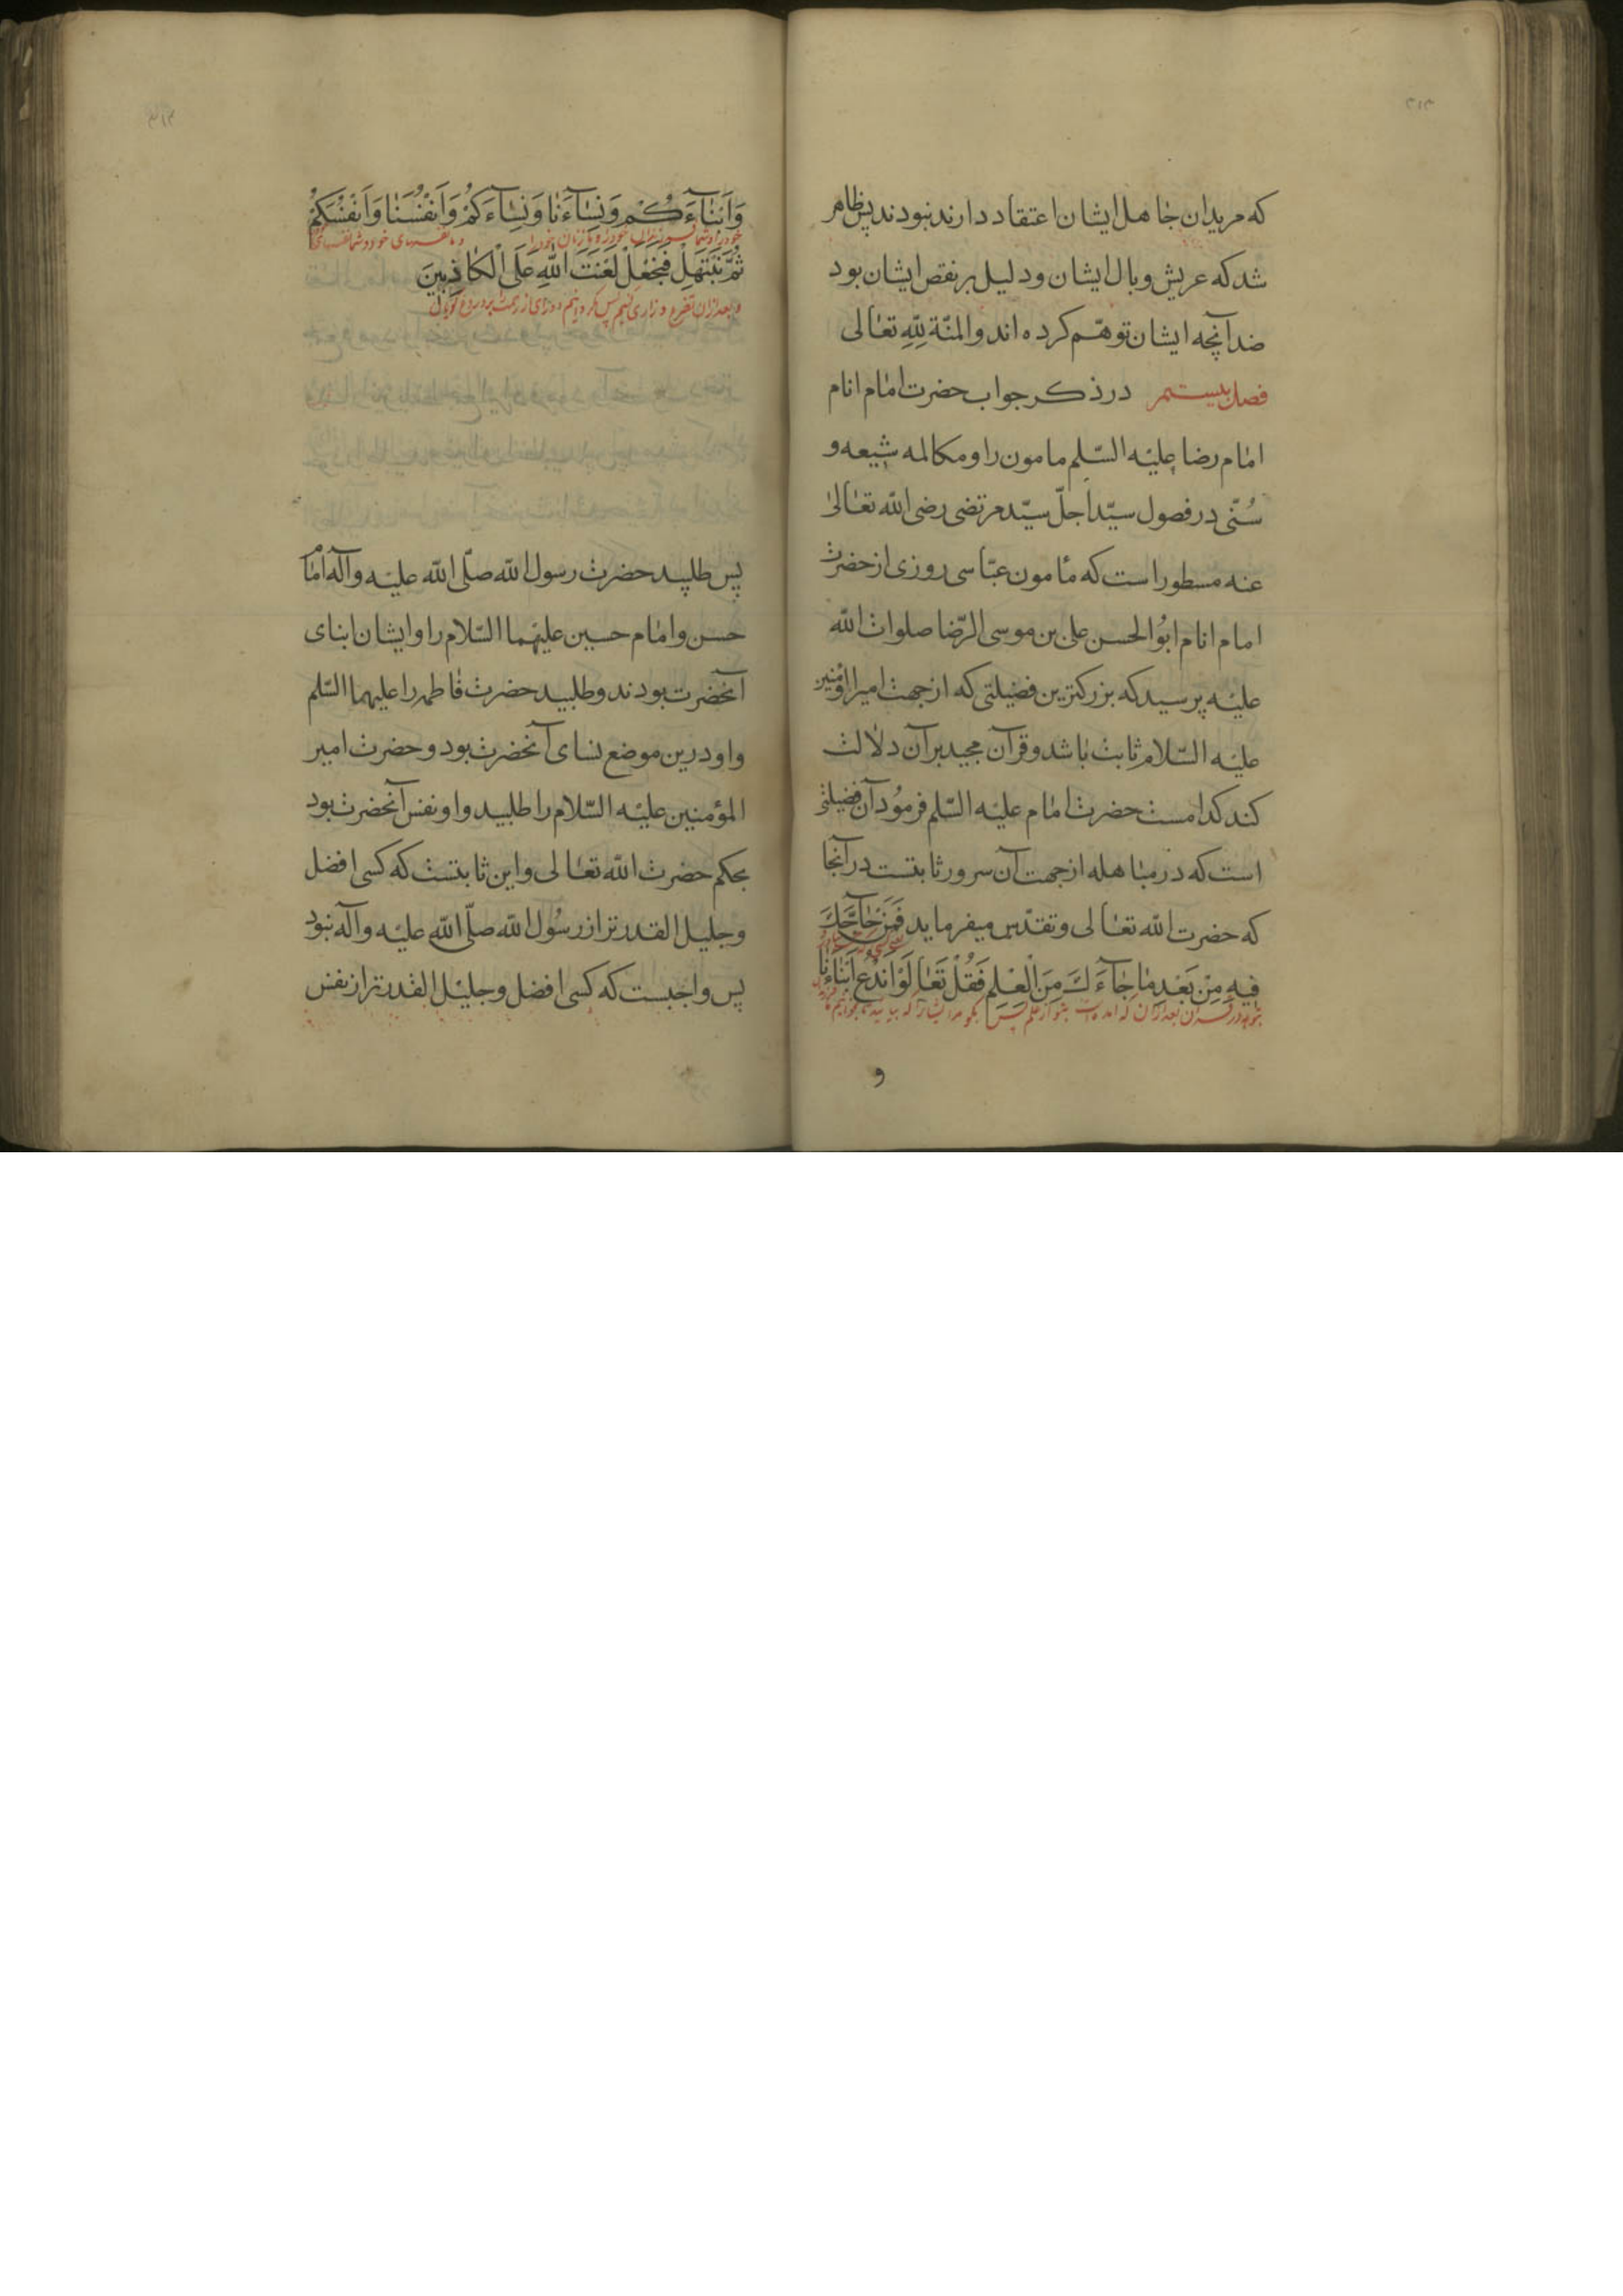 که مریدان جاهل ایشان اعتقاد دارند نبودند پس ظاهر
شد که عریش وبال ایشان ودلیل بر نقص ایشان بود
ضد آنچه ایشان توهّم کرده اند والمنّة لِلّهِ تعالی
فصل بیستم در ذکر جواب حضرت امام انام
امام رضا علیه السّلم مامون را ومکالمه شیعه و
سُنّی در فصول سیّد اجلّ سیّد مرتضی رضی الله تعالی
عنه مسطور است که مأمون عبّاسی روزی از حضرت
امام انام ابوالحسن علی بن موسی الرّضا صلوات الله
علیه پرسید که بزرکترین فضیلتی که از جهت امیرالمؤمنین
علیه السّلام ثابت باشد وقرآن مجید بر آن دلالت
کند کدامست حضرت امام علیه السّلم فرمود آن فضیلتی
است که در مباهله از جهت آن سرور ثابتست در آنجا
که حضرت الله تعالی وتقدّس میفرماید فَمَنْ حَآجَّكَ
فِیهِ مِنْ بَعْدِ مَا جَآءَكَ مِنَ الْعِلْمِ فَقُلْ تَعَالَوْا نَدْعُ اَبْنَاءَنَا
بعد از آن که آمده است از علم پس بکو مر ایشانرا که بیایید تا بخوانیم
و
وَاَبْنَآءَكُمْ وَنِسَآءَنَا وَنِسَآءَكُمْ وَاَنْفُسَنَا وَاَنْفُسَكُمْ
خود را وشما فرزندان خود را وما زنان خود را وما نفسهای خود وشما نفسهای
ثُمَّ نَبْتَهِلْ فَنَجْعَلْ لَعْنَتَ اللّهِ عَلَی الْكَاذِبِینَ
وبعد از آن تضرع وزاری کنیم پس بکردانیم دوری از رحمت بر دروغ کویان
پس طلبید حضرت رسول الله صلّی الله علیه وآله امام
حسن وامام حسین علیهما السّلام را وایشان ابنای
آنحضرت بودند وطلبید حضرت فاطمه را علیهما السّلم
واو درین موضع نسای آنحضرت بود وحضرت امیر
المؤمنین علیه السّلام را طلبید واو نفس آنحضرت بود
بحکم حضرت الله تعالی واین ثابتست که کسی افضل
وجلیل القدرتر از رسول الله صلّی الله علیه وآله نبود
پس واجبست که کسی افضل وجلیل القدرتر از نفس